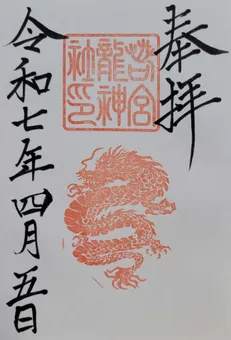 奉拝
若宮
龍神
社印
令和七年四月五日